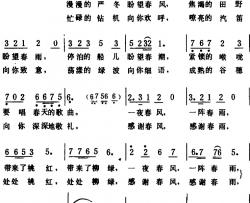 漫漫的严冬盼望春风， 焦渴的田野
忙碌的钻机向你欢呼， 嘹亮的汽笛
3 2 1 2 0 3 2 2 3 5 3 5 2 3 2 1 7 6 7 2 3
盼望春雨， 停泊的船儿盼望春潮， 紧锁的喉咙
向你致意， 荡漾的绿波向你细语， 成熟的谷穗
7 0 2 6 6 7 6 5 6 1 2 3 1 2 3
要唱春天的歌曲。 一夜春风， 一阵春雨，
向你深深地敬礼。 感谢春风， 感谢春雨，
7 7 6 5 6 7 7 6 5 6 2 1 2 6 7 6 7 6 5
带来了桃红， 带来了柳绿， 一夜春风， 一阵春雨，
处处桃红， 处处柳绿， 感谢春风， 感谢春雨，